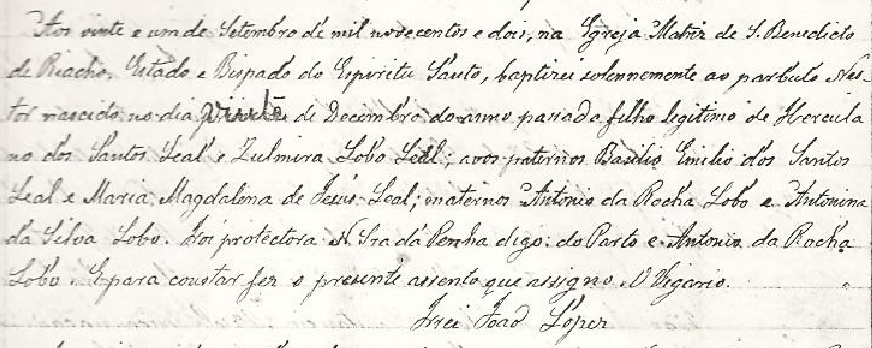 Aos vinte e um de Setembro de mil novecentos e dois, na Egreja Matriz de S. Benedicto
de Riacho, Estado e Bispado do Espirito Santo, baptizei solennemente ao parbulo Nes-
tor nascido no dia vinte de Decembro do anno passado filho legitimo de Hercula
no dos Santos Leal e Zulmira Lobo Leal; avos paternos Basilio Emilio dos Santos
Leal e Maria Magdalena de Jesus Leal; maternos Antonio da Rocha Lobo e Antonina
da Silva Lobo. Foi protectora N. Sra da Penha digo: do Parto e Antonio da Rocha
Lobo. E para constar fez o presente assento que assigno. O Vigario.
Frei João Lopez